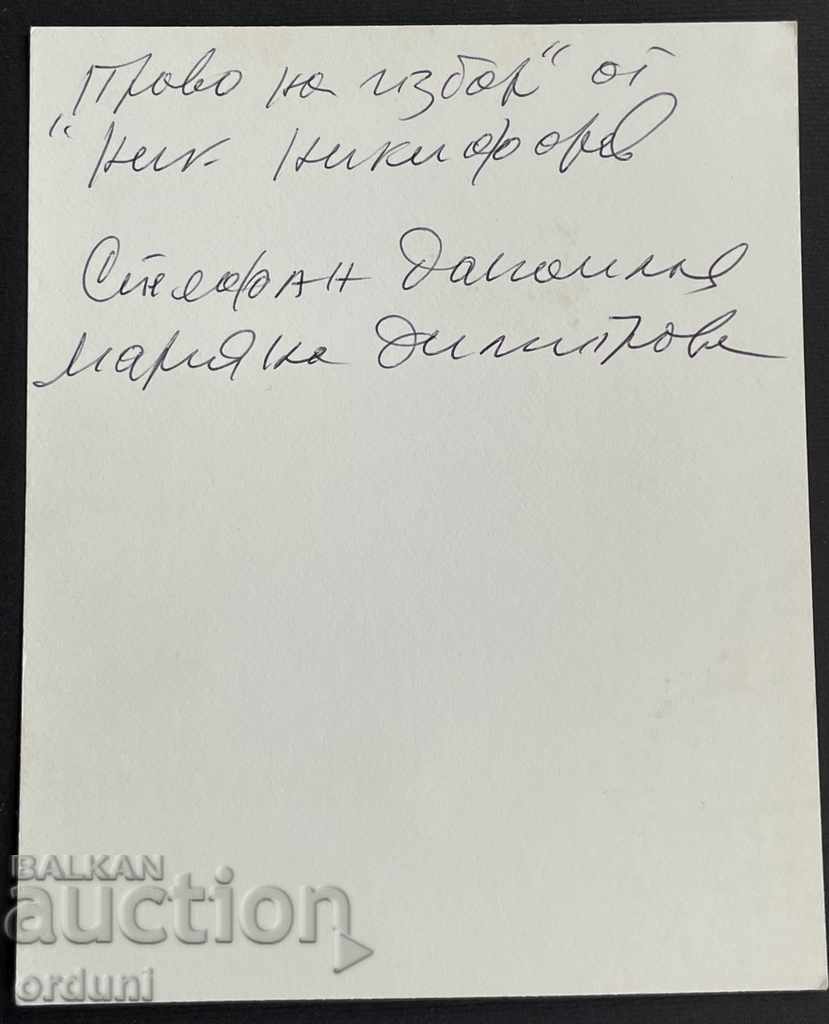 "Право на избор" от
Ник. Никифоров
Стефан Данаилов
Марияна Димитрова
BALKAN
auction
orduni